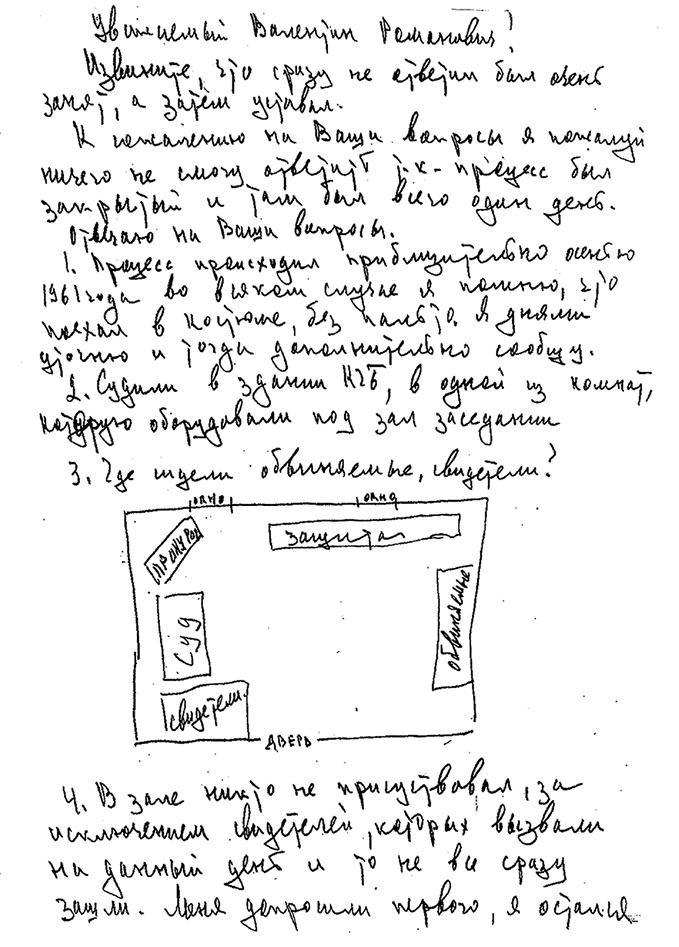 Уважаемый Валентин Романович!
Извините, что сразу не ответил был очень
занят, а затем уставал.
К сожалению на Ваши вопросы я пожалуй
ничего не смогу ответить т.к. процесс был
закрытый и там был всего один день.
Отвечаю на Ваши вопросы.
1. Процесс происходил приблизительно осенью
1961 года во всяком случае я помню, что
поехал в костюме, без пальто. Я днями
уточню и тогда дополнительно сообщу.
2. Судили в здании КГБ, в одной из комнат,
которую оборудовали под зал заседании
3. Где сидели обвиняемые, свидетели?
окно окно
прокурор
защита
обвиняемые
Суд
свидетели.
дверь
4. В зале никто не присуствовал, за
исключением свидетелей, которых вызвали
на данный день и то не все сразу
зашли. Меня допросили первого, я остался